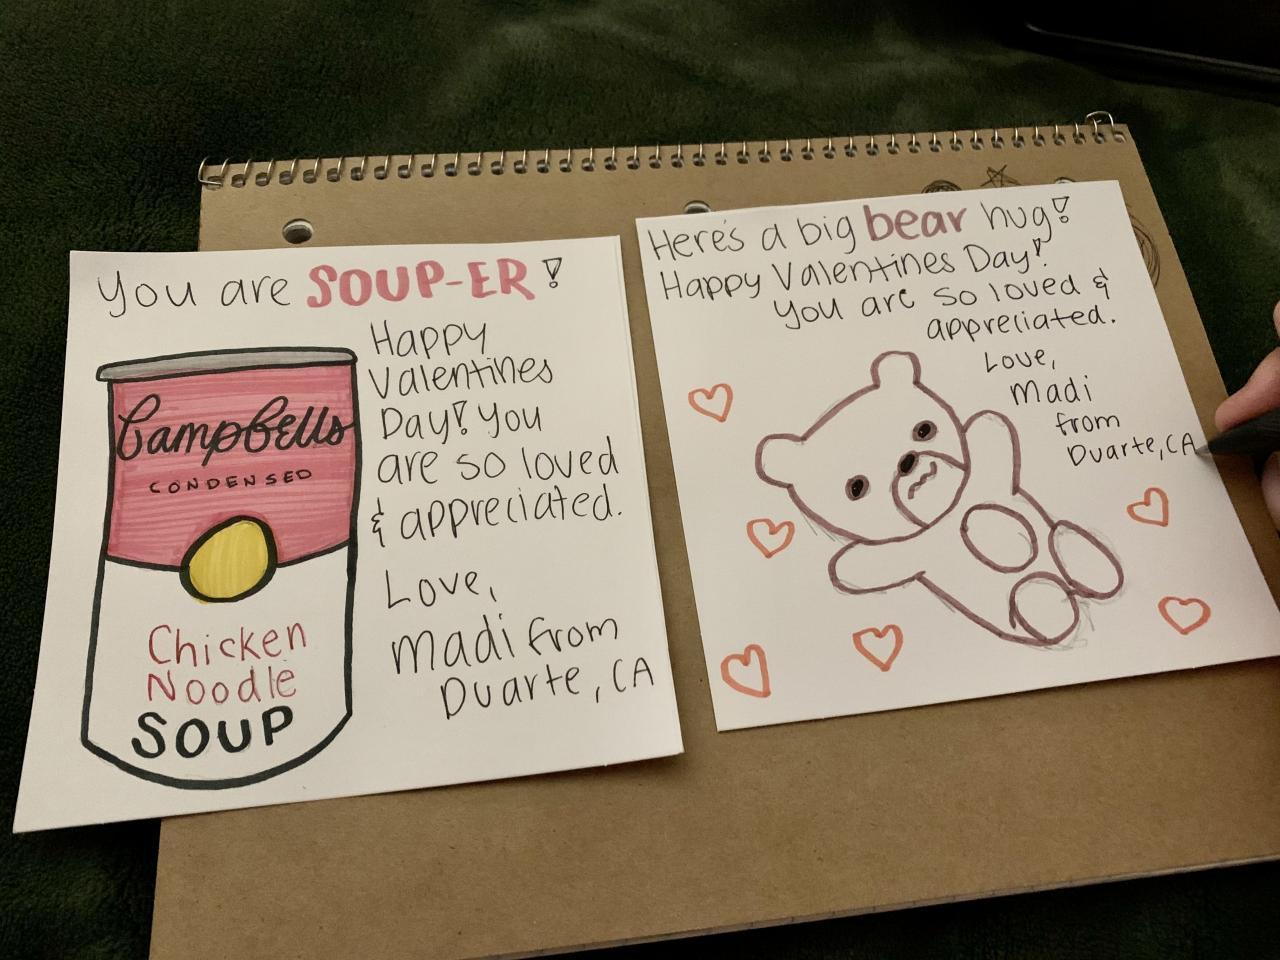 You are SOUP-ER!
Campbells
CONDENSED
Chicken
Noodle
SOUP
Happy
Valentines
Day! You
are so loved
& appreciated.
Love,
Madi from
Duarte, CA
Here's a big bear hug!
Happy Valentines Day!
You are so loved &
appreciated.
Love,
Madi
from
Duarte, CA